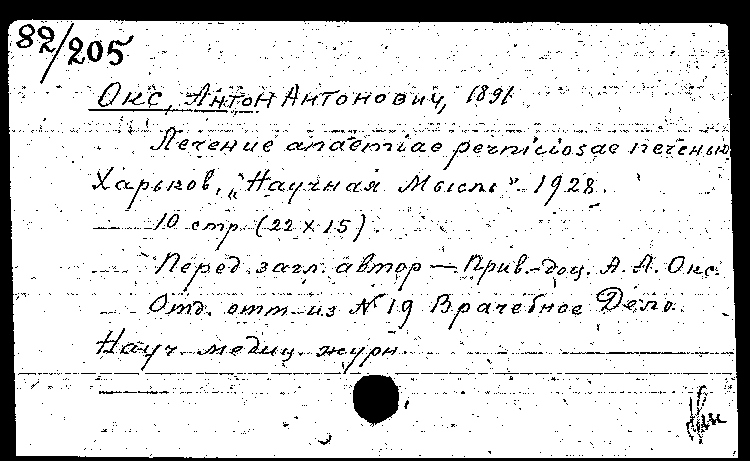 82/205
Окс, Антон Антонович, 1891
Лечение anaemiae perniciosae печенью
Харьков, „Научная Мысль" 1928.
10 стр (22 x 15).
Перед загл. автор — Прив.-доц. А. А. Окс.
Отд. отт. из № 19 Врачебное Дело.
Науч. медиц. журн.